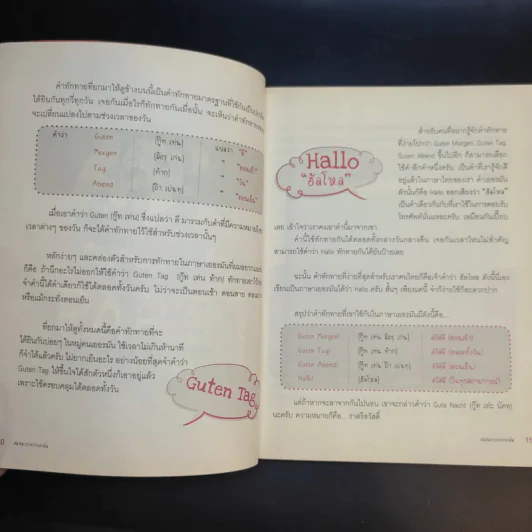 คำทักทายที่ยกมาให้ดูข้างบนนี้เป็นคำทักทายมาตรฐานที่ใช้กัน
ได้ยินกันทุกวี่ทุกวัน เจอกันเมื่อไรก็ทักทายกันเมื่อนั้น จะเห็นว่าคำทักทาย
จะเปลี่ยนแปลงไปตามช่วงเวลาของวัน
คำว่า Guten (กู๊ท เท่น) แปลว่า "ดี"
Morgen
Tag (ท้าก)
Abend
เมื่อเอาคำว่า Guten (กู๊ท เท่น) ซึ่งแปลว่า ดี มารวมกับคำที่มีความหมาย
เวลาต่างๆ ของวัน ก็จะได้คำทักทายไว้ใช้สำหรับช่วงเวลานั้นๆ
หลักง่ายๆ และคล่องตัวสำหรับการทักทายในภาษาเยอรมัน
ก็คือ ถ้านึกอะไรไม่ออกให้ใช้คำว่า Guten Tag (กู๊ท เท่น ท้าก) ทักทาย
จำคำนี้ได้คำเดียวก็ใช้ได้ตลอดทั้งวันครับ ไม่ว่าจะเป็นตอนเช้า ตอนสาย
หรือแม้กระทั่งตอนเย็น
ที่ยกมาให้ดูทั้งหมดนี้คือคำทักทายที่จะ
ได้ยินกันบ่อยๆ ในหมู่คนเยอรมัน ใช้เวลาไม่เกินห้านาที
ก็จำได้แล้วครับ ไม่ยากเย็นอะไร อย่างน้อยที่สุดจำคำว่า
Guten Tag ให้ขึ้นใจได้สักตัวหนึ่งก็เอาอยู่แล้ว
เพราะใช้ครอบคลุมได้ตลอดทั้งวัน
Guten Tag
Hallo
"ฮัลโหล"
สำหรับคนที่อยากรู้จักคำทักทาย
ที่ง่ายไปกว่า Guten Morgen, Guten Tag,
Guten Abend ขึ้นไปอีก ก็สามารถเลือก
ใช้คำอีกคำหนึ่งครับ เป็นคำที่เรารู้จักดี
อยู่แล้วในภาษาไทยของเรา คำเยอรมัน
ตัวนั้นก็คือ Hallo ออกเสียงว่า "ฮัลโหล"
เป็นคำเดียวกันกับที่เราใช้ในการตอบรับ
โทรศัพท์นั่นแหละครับ เหมือนกันเปี๊ยบ
เลย เข้าใจว่าเราคงเอาคำนี้มาจากเขา
คำนี้ใช้ทักทายกันได้ตลอดทั้งกลางวันกลางคืน เจอกันเวลาไหนไม่สำคัญ
สามารถใช้คำว่า Hallo ทักทายกันได้ยันป้ายเลย
ฉะนั้น คำทักทายที่ง่ายที่สุดสำหรับเราคนไทยก็คือเจ้าคำว่า ฮัลโหล ตัวนี้นี่เอง
เขียนเป็นภาษาเยอรมันได้ว่า Hallo ครับ สั้นๆ เพียงแค่นี้ จำง่ายใช้ก็สะดวกปาก
สรุปว่าคำทักทายที่เขาใช้กันในภาษาเยอรมันมีดังนี้คือ...
Guten Morgen (กู๊ท เท่น ม้อร เก่น) สวัสดี (ตอนเช้า)
Guten Tag (กู๊ท เท่น ท้าก) สวัสดี (ตลอดทั้งวัน)
Guten Abend สวัสดี (ตอนเย็น)
Hallo (ฮัลโหล) สวัสดี (ในทุกสถานการณ์)
แต่ถ้าหากจะลาจากกันไปนอน เขาจะกล่าวคำว่า Gute Nacht (กู๊ท เท่อ นัคท)
นะครับ ความหมายก็คือ... ราตรีสวัสดิ์
11